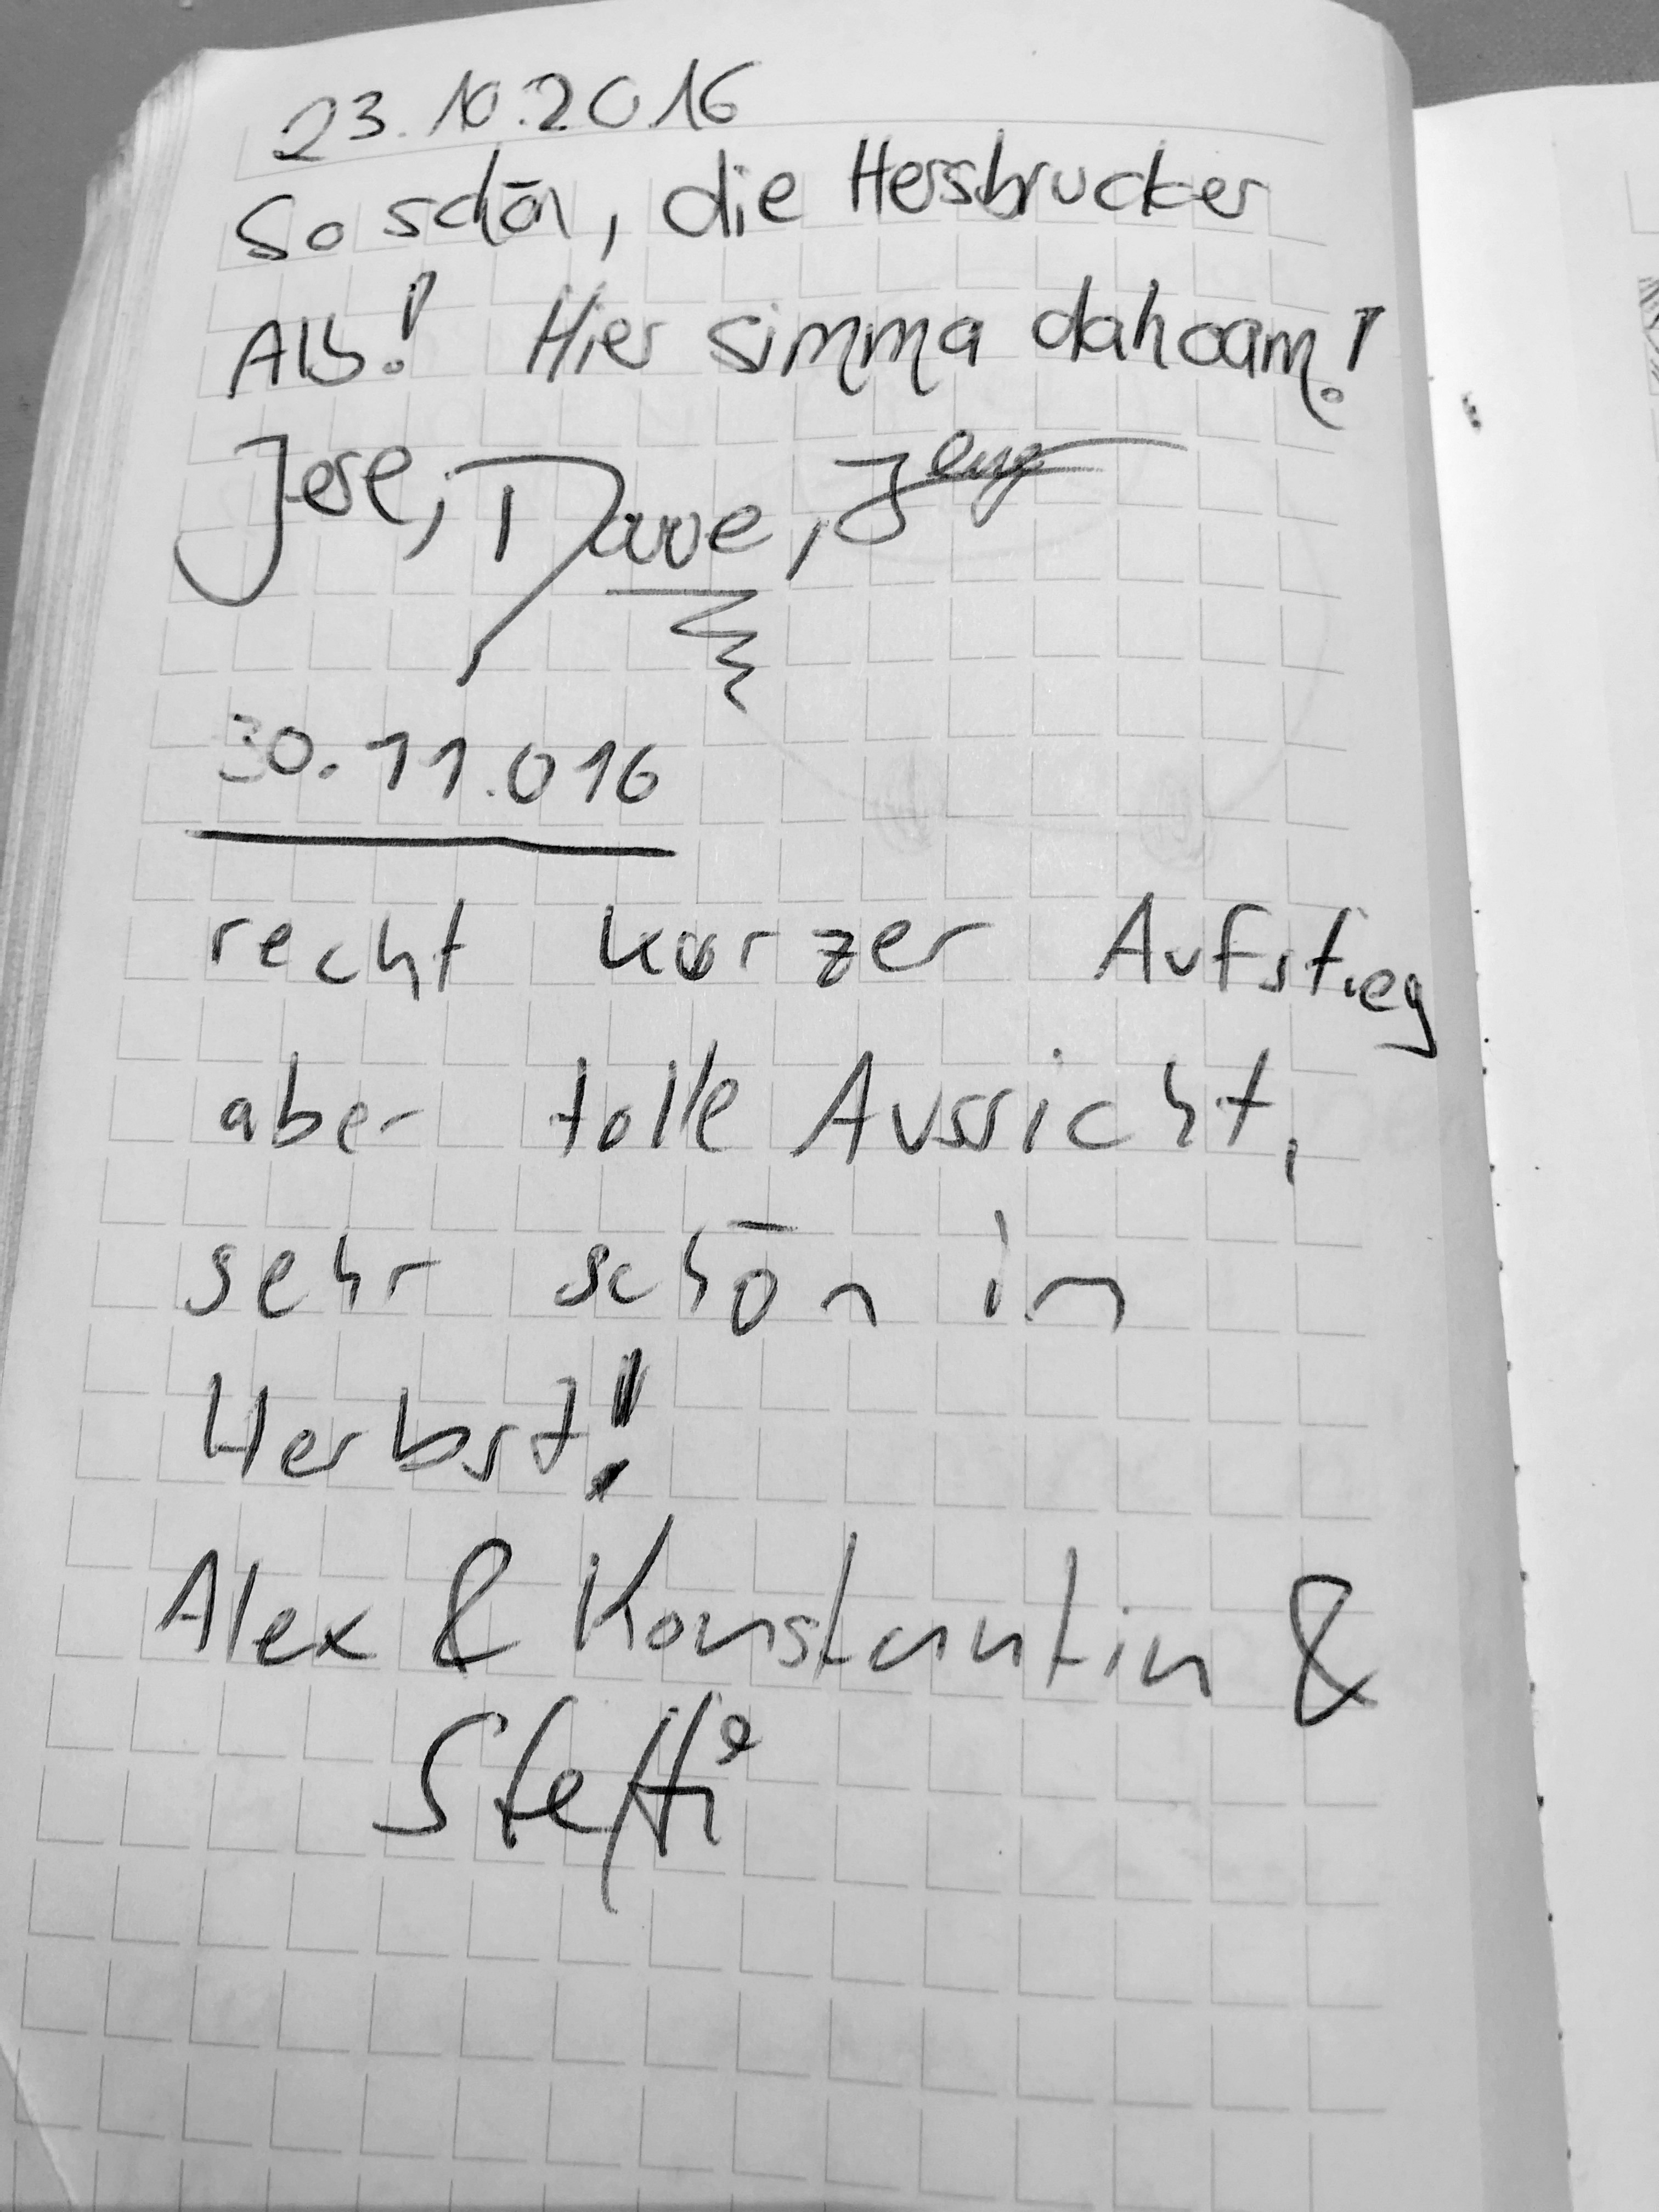 23.10.2016
So schön, die Hersbrucker
Alb! Hier simma dahoam!
Jese, Dave, Jens
30.11.016
recht kurzer Aufstieg
aber tolle Aussicht,
sehr schön im
Herbst!
Alex & Konstantin &
Steffi